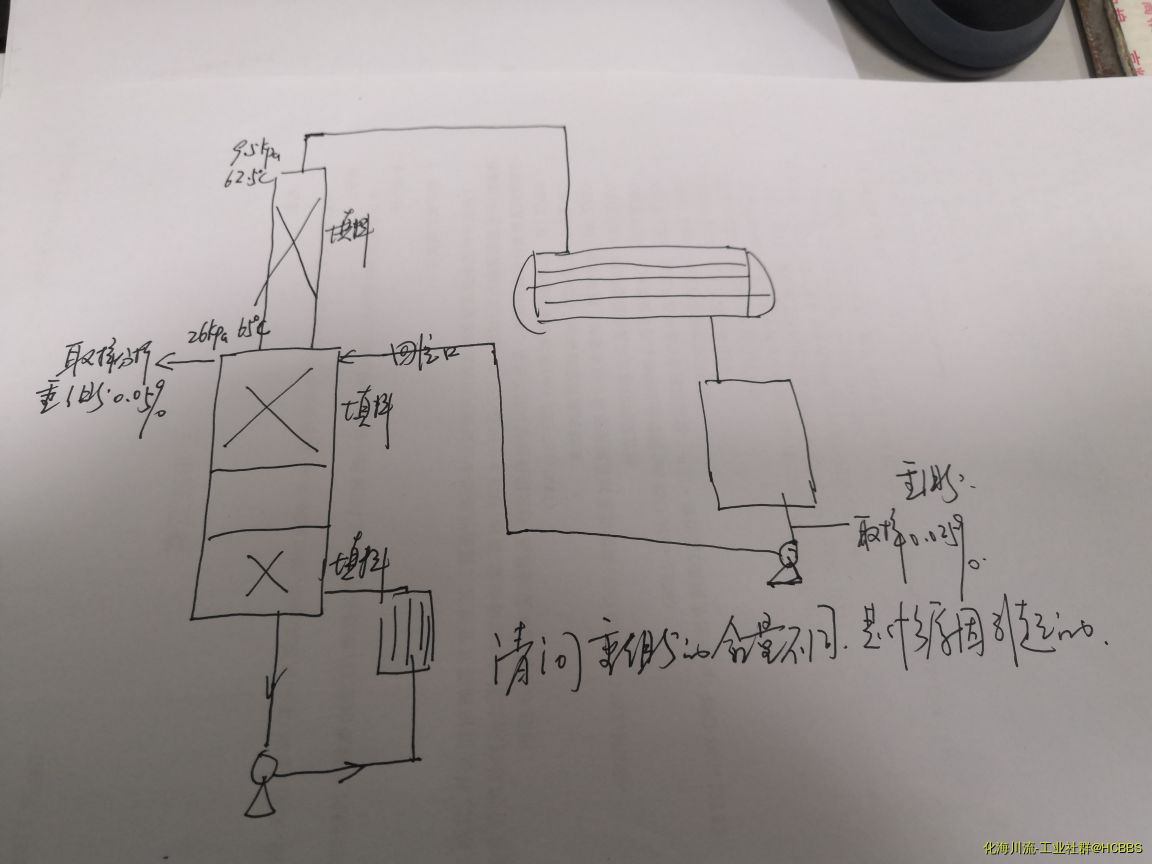 9.5kpa
62.5℃
填料
26kpa 65℃
取样分析
重组分:0.05%
回流口
填料
填料
重组分:
取样0.025%
请问重组分的含量不同.是什么原因引起的.
化海川流-工业社群@HCBBS